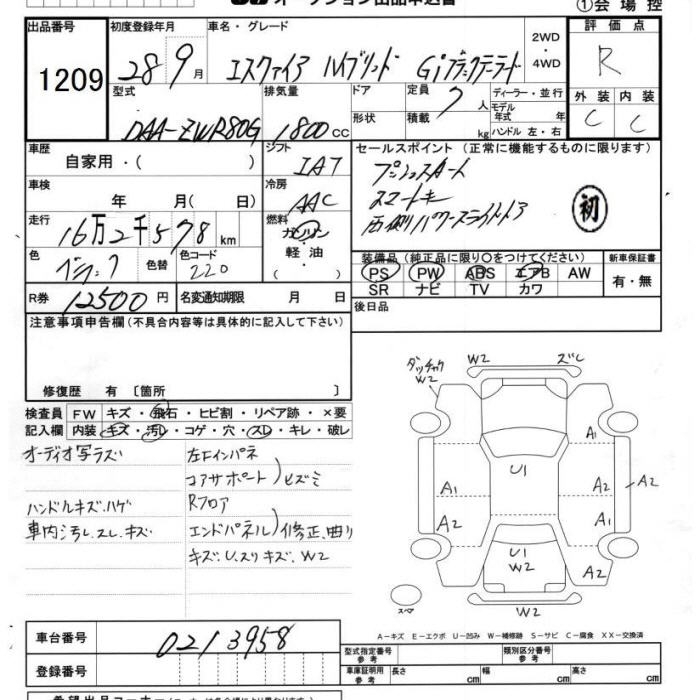 オークション出品申込書 ①会場控
出品番号 初度登録年月 車名・グレード 2WD ・ 4WD 評価点
1209 28 9月 エスクァイア ハイブリッド Giブラックテーラード R
型式 排気量 ドア 定員 7 人 ディーラー・並行 外装 内装
形状 積載 kg モデル年式 年 ハンドル 左・右
DAA-ZWR80G 1800 CC C C
車歴 シフト セールスポイント (正常に機能するものに限ります)
自家用・( ) IAT プッシュスタート
車検 冷房 スマートキー 初
年 月( 日) AAC 両側パワースライドドア
走行 燃料
16万2千578km ガソリン・軽油
色 色替 色コード 装備品 (純正品に限り○をつけてください) 新車保証書
ブラック 220 ( ) PS PW ABS エアB AW 有・無
SR ナビ TV カワ
R券 12500円 名変通知期限 月 日 後日品
注意事項申告欄 (不具合内容等は具体的に記入して下さい)
修復歴 有 〔箇所 〕
検査員 FW キズ・飛石・ヒビ割・リペア跡・×要
記入欄 内装 キズ・汚れ・コゲ・穴・スレ・キレ・破レ
オーディオ写ラズ 左Fインパネ
コアサポート)ヒズミ
ハンドルキズ.ハゲ Rフロア
車内汚レ.スレ.キズ エンドパネル)修正、曲り
キズ.U.スリキズ.W2
W2 ズレ
W2
A1
U1
A1 A2 A2
A2 A1
U1
W2
A2
スペア W2
A－キズ E－エクボ U－凹み W－補修跡 S－サビ C－腐食 XX－交換済
車台番号 0213958 型式指定番号 参考 類別区分番号 参考
登録番号 車庫証明用 参考 長さ cm 幅 cm 高さ cm
希望出品コーナー